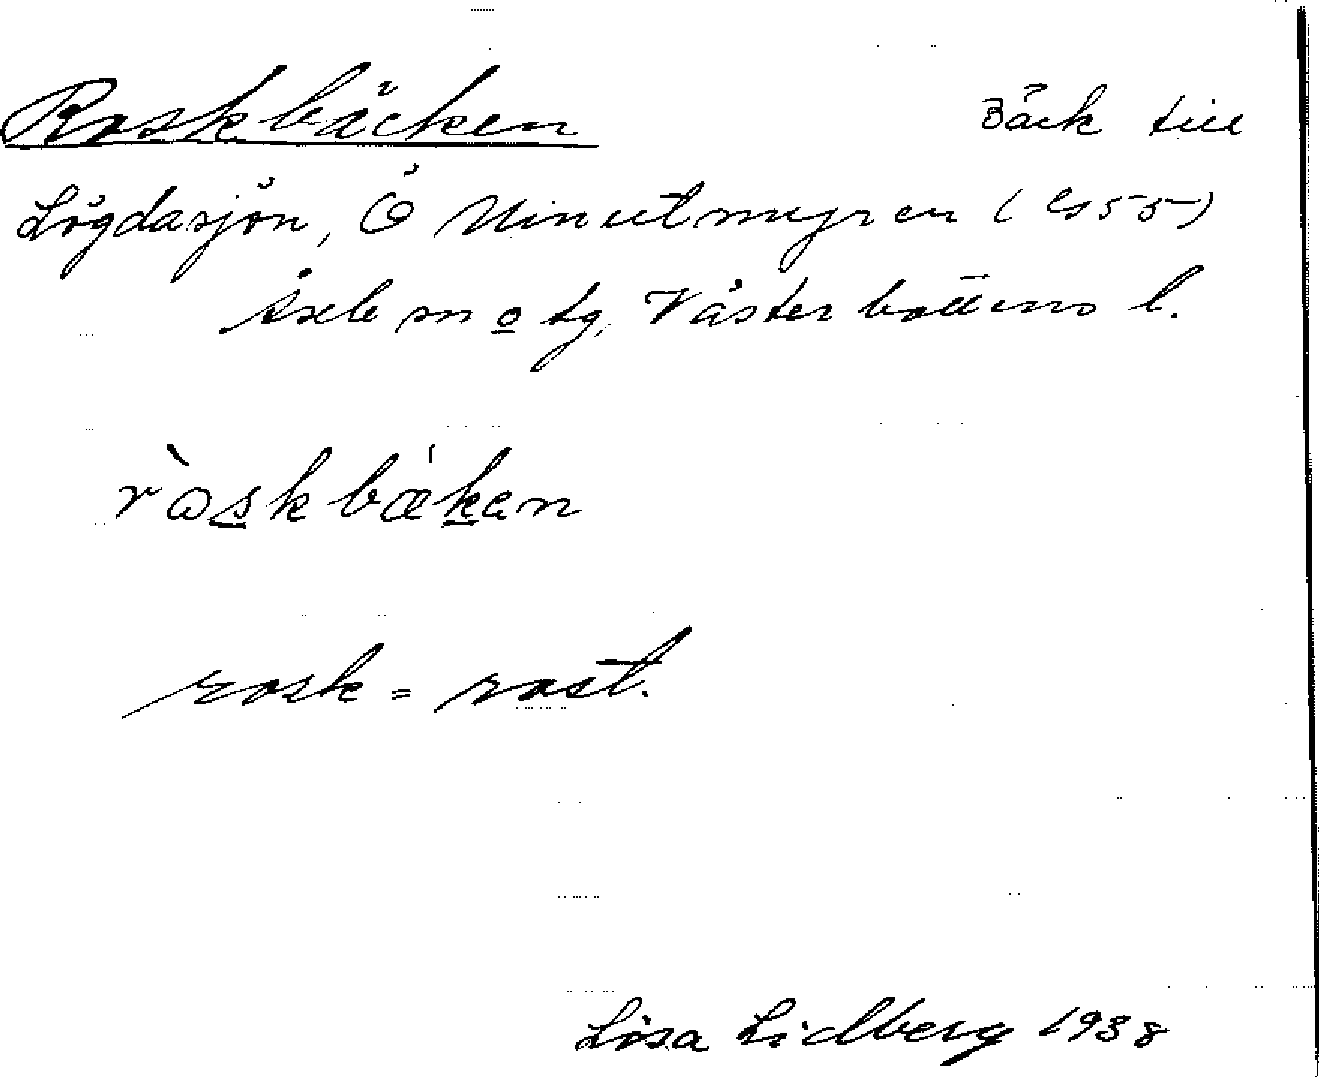 Roskbäcken Bäck till
Lögdasjön, Ö Minutmyren (Es 55)
Åsele sn o tg, Västerbottens l.
ròskbækan
rosk = rost.
Lisa Lidberg 1938